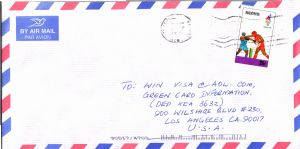 BY AIR MAIL
PAR AVION
NIGERIA
TO: WIN VISA @ AOL.COM,
GREEN CARD INFORMATION,
(DEP KEA 3632)
500 WILSHIRE BLVD #230,
LOS ANGELES CA 90017
U.S.A.